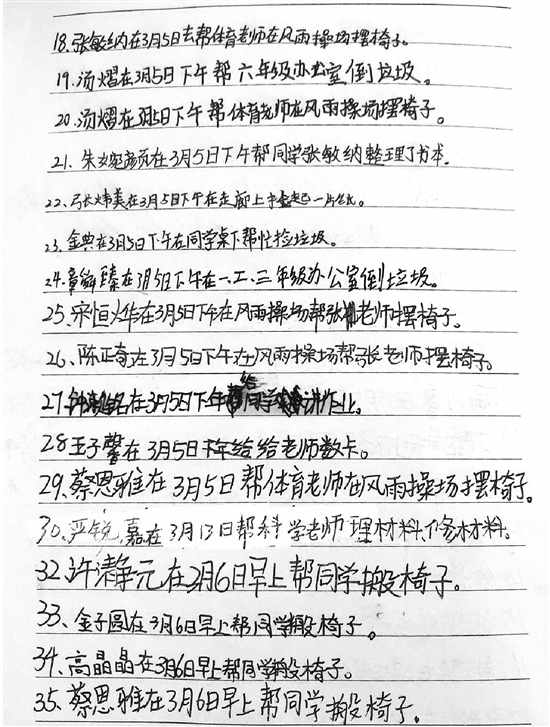 18.张敏纳在3月5日去帮体育老师在风雨操场摆椅子。
19.汤熠在3月5日下午帮六年级办公室倒垃圾。
20.汤熠在3月5日下午帮体育老师在风雨操场摆椅子。
21.朱 在3月5日下午帮同学张敏纳整理了书本。
22. 美在3月5日下午在走廊上 一片垃圾。
23.金典在3月5日下午在同学桌下帮忙捡垃圾。
24.章 臻在3月5日下午在一.二.三年级办公室倒垃圾。
25、宋恒火华在3月5日下午在风雨操场帮张老师摆椅子。
26、陈正奇在3月5日下午在风雨操场帮张老师摆椅子。
27. 在3月5日下午给同学 讲作业。
28王子馨在3月5日下午给给老师数卡。
29.蔡恩雅在3月5日帮体育老师在风雨操场摆椅子。
30、严锐嘉在3月13日帮科学老师理材料、修材料。
32.许静元在3月6日早上帮同学搬椅子。
33、金子圆在3月6日早上帮同学搬椅子。
34、高晶晶在3月6日早上帮同学搬椅子。
35、蔡恩雅在3月6日早上帮同学搬椅子。